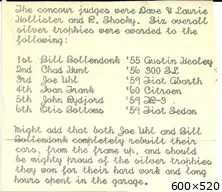 The concour judges were Dave & Laurie
Hollister and R. Shocky. Six overall
silver trophies were awarded to the
following:
1st Bill Bollendonk '55 Austin Healey
2nd Chad Hunt '56 300 SL
3rd Joe Uhl '59 Fiat Abarth
4th Ivan Frank '60 Citroen
5th John Rydjord '59 TR-3
6th Otis Bottoms '59 Fiat Sedan
Might add that both Joe Uhl and Bill
Bollendonk completely rebuilt their
cars, from the frame up, and should
be mighty proud of the silver trophies
they won for their hard work and long
hours spent in the garage.
600×520